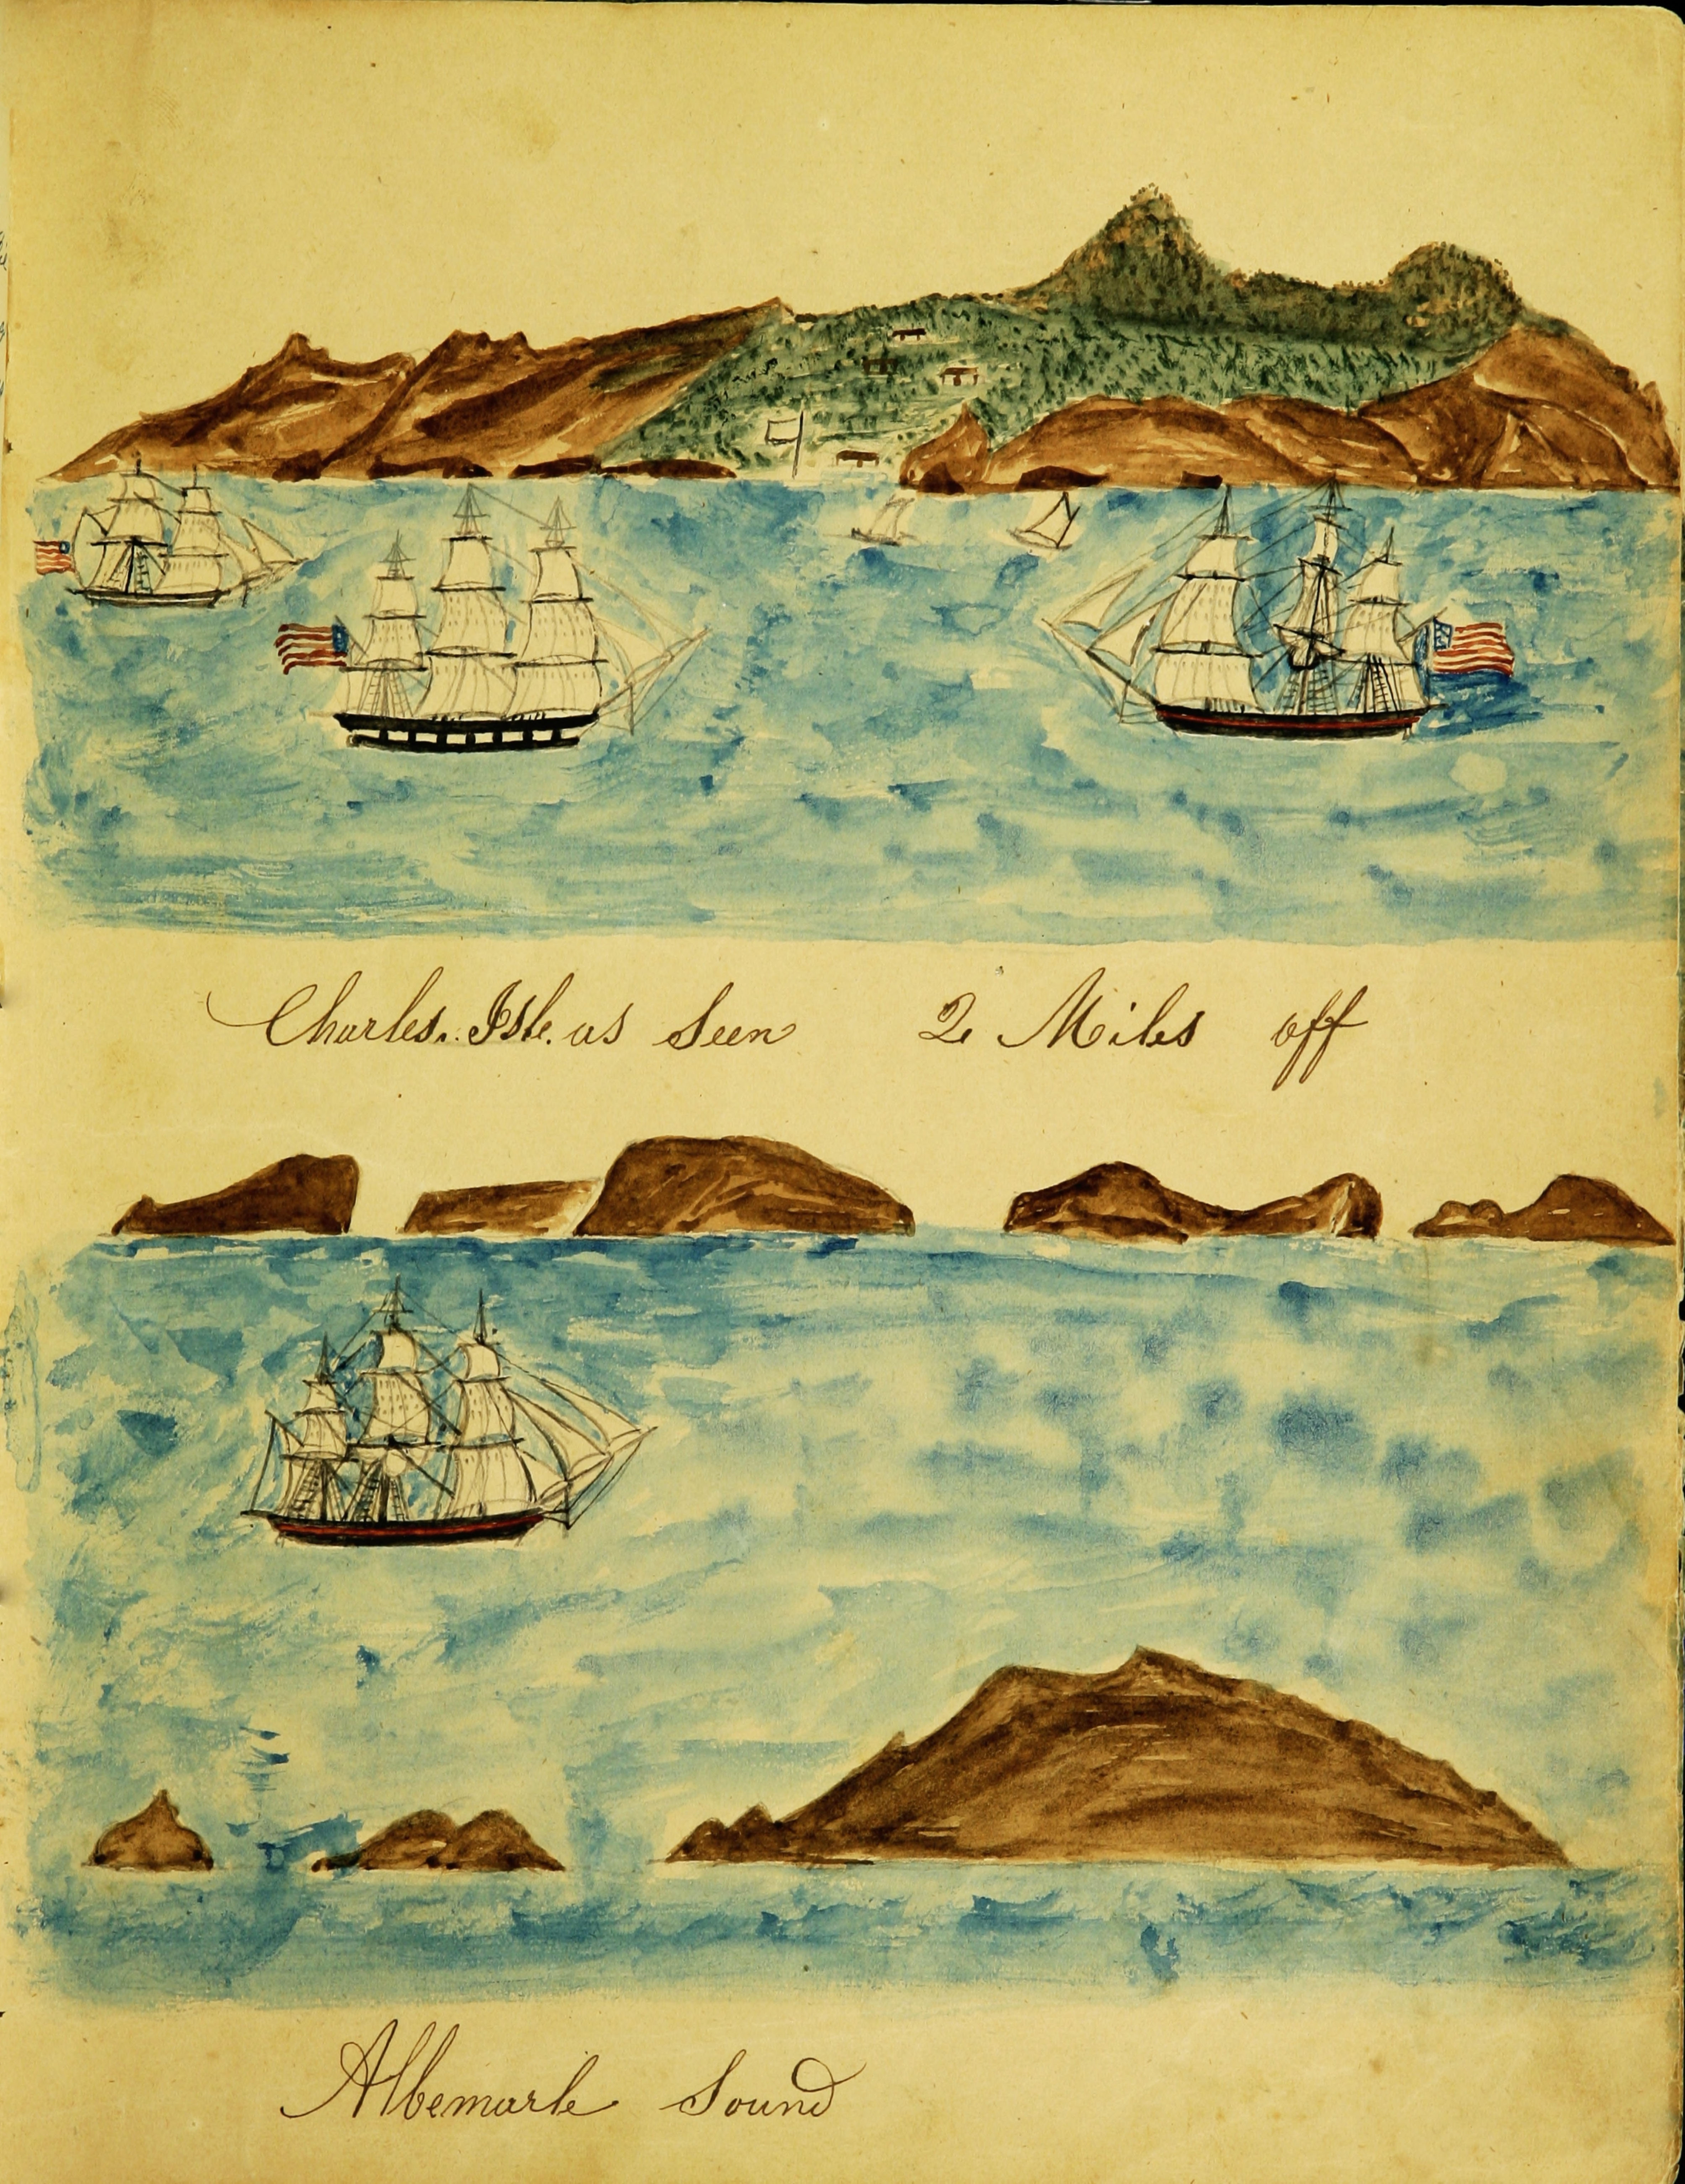 Charles. Isle. as Seen 2 Miles off
Albemarle Sound